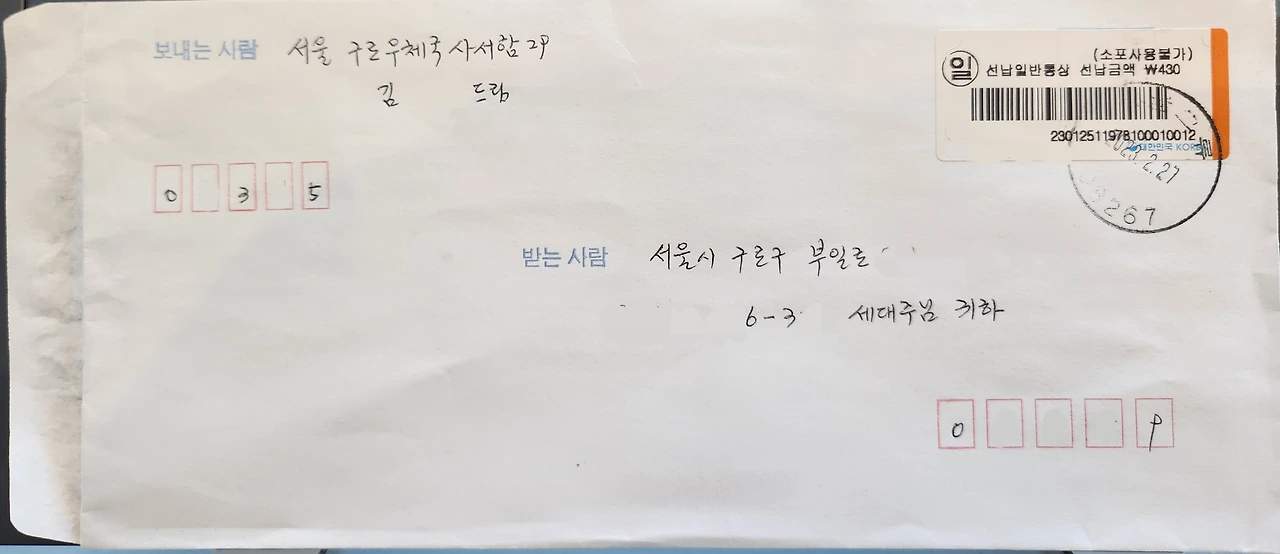 보내는 사람 서울 구로우체국 사서함 29
김 드림
0 3 5
(소포사용불가)
일 선납일반통상 선납금액 ₩430
23012511978100010012
대한민국 KOREA
2023.2.27
08267
받는 사람 서울시 구로구 부일로
6-3 세대주님 귀하
0 9